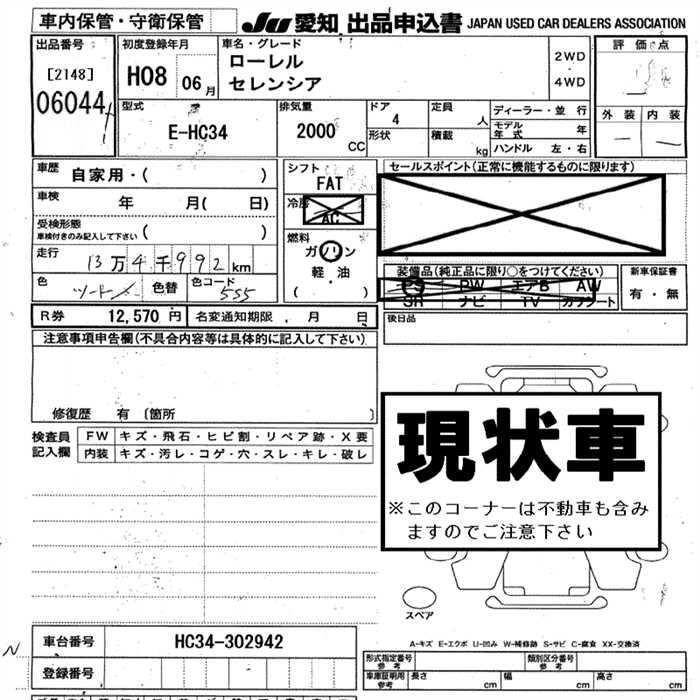 車内保管・守衛保管
JU 愛知 出品申込書 JAPAN USED CAR DEALERS ASSOCIATION
出品番号
[2148]
06044
初度登録年月
H08 06月
車名・グレード
ローレル
セレンシア
2WD
・
4WD
評価点
外装 内装
型式
E-HC34
排気量
2000
CC
ドア
4
形状
定員
人
積載
kg
ディーラー・並行
モデル年式 年
ハンドル 左・右
車歴
自家用・( )
車検
年 月( 日)
受検形態
車検付きのみ記入して下さい ( )
走行
13万4千992km
色
ツートン
色替
色コード
555
シフト
FAT
冷房
AC
燃料
ガソリン
軽・油
( )
セールスポイント(正常に機能するものに限ります)
装備品(純正品に限り○をつけてください)
PS PW エアB AW
SR ナビ TV カワシート
新車保証書
有・無
後日品
R券 12,570円
名変通知期限 . 月 日
注意事項申告欄(不具合内容等は具体的に記入して下さい)
修復歴 有 〔箇所 〕
検査員
記入欄
FW キズ・飛石・ヒビ割・リペア跡・X要
内装 キズ・汚レ・コゲ・穴・スレ・キレ・破レ
現状車
※このコーナーは不動車も含み
ますのでご注意下さい
スペア
A-キズ E-エクボ U-凹み W-補修跡 S-サビ C-腐食 XX-交換済
N
車台番号 HC34-302942
登録番号
形式指定番号
参考
類別区分番号
参考
車庫証明用
参考
長さ cm
幅 cm
高さ cm